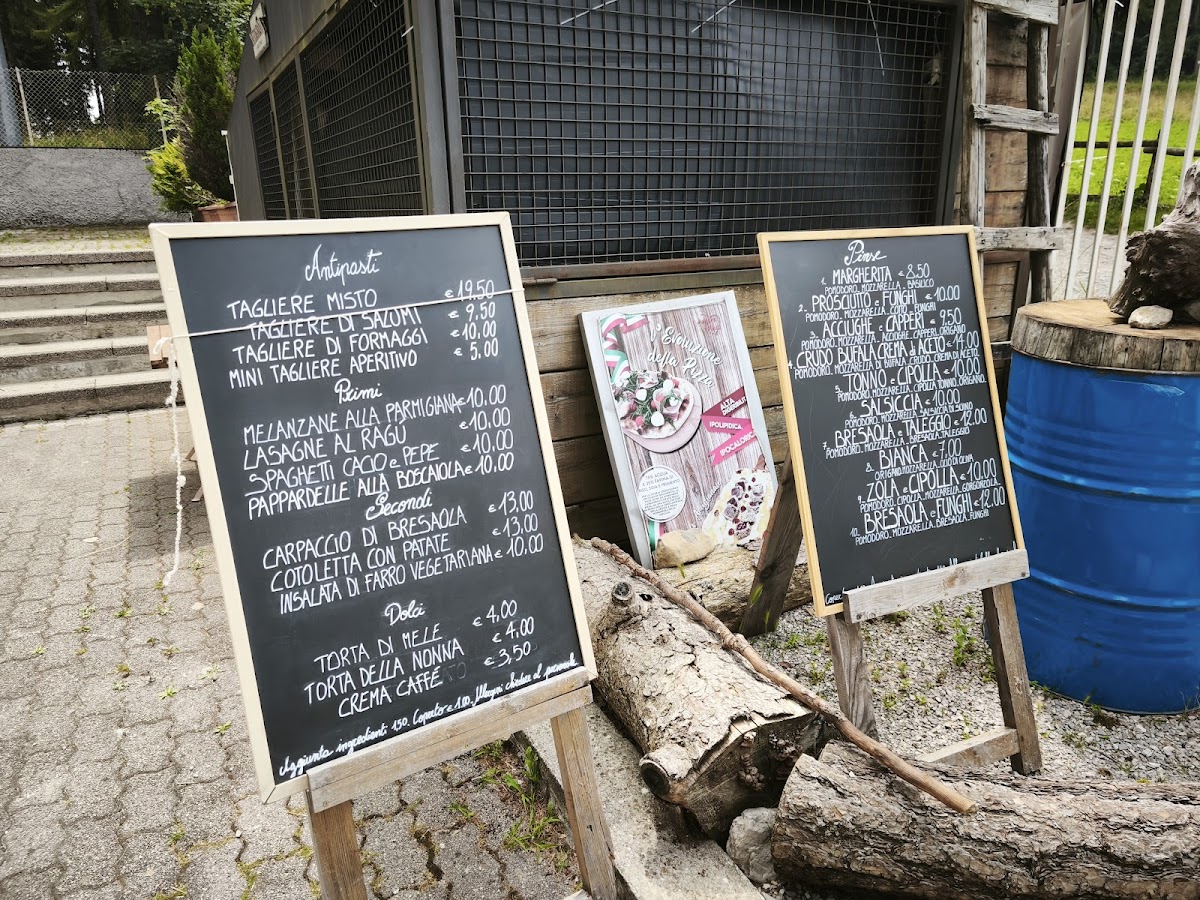 Antipasti
TAGLIERE MISTO € 19.50
TAGLIERE DI SALUMI € 9.50
TAGLIERE DI FORMAGGI € 10.00
MINI TAGLIERE APERITIVO € 5.00
Primi
MELANZANE ALLA PARMIGIANA € 10.00
LASAGNE AL RAGÚ € 10.00
SPAGHETTI CACIO e PEPE € 10.00
PAPPARDELLE ALLA BOSCAIOLA € 10.00
Secondi
CARPACCIO DI BRESAOLA € 13.00
COTOLETTA CON PATATE € 13.00
INSALATA DI FARRO VEGETARIANA € 10.00
Dolci
TORTA DI MELE € 4.00
TORTA DELLA NONNA € 4.00
CREMA CAFFÉ € 3,50
Aggiunta ingredienti 1,50. Coperto € 1.80. Allergeni chiedere al personale
l'Evoluzione
della Pizza
ALTA
DIGERIBILITÀ
IPOLIPIDICA
IPOCALORICA
Pinse
1. MARGHERITA € 8.50
POMODORO, MOZZARELLA, BASILICO
2. PROSCIUTTO e FUNGHI € 10.00
POMODORO, MOZZARELLA, COTTO, FUNGHI
3. ACCIUGHE e CAPPERI € 9.50
POMODORO, MOZZARELLA, ACCIUGHE, CAPPERI, ORIGANO
4. CRUDO BUFALA CREMA di ACETO € 14.00
POMODORO, MOZZARELLA DI BUFALA, CRUDO, CREMA DI ACETO.
5. TONNO e CIPOLLA € 10.00
POMODORO, MOZZARELLA, CIPOLLA, TONNO, ORIGANO.
6. SALSICCIA € 10.00
POMODORO, MOZZARELLA, SALSICCIA DI SUINO
7. BRESAOLA e TALEGGIO € 12.00
POMODORO, MOZZARELLA, BRESAOLA, TALEGGIO
8. BIANCA € 7.00
ORIGANO, MOZZARELLA, OLIO DI OLIVA
9. ZOLA e CIPOLLA € 10.00
POMODORO, CIPOLLA, MOZZARELLA, GORGONZOLA
10. BRESAOLA e FUNGHI € 12.00
POMODORO, MOZZARELLA, BRESAOLA, FUNGHI